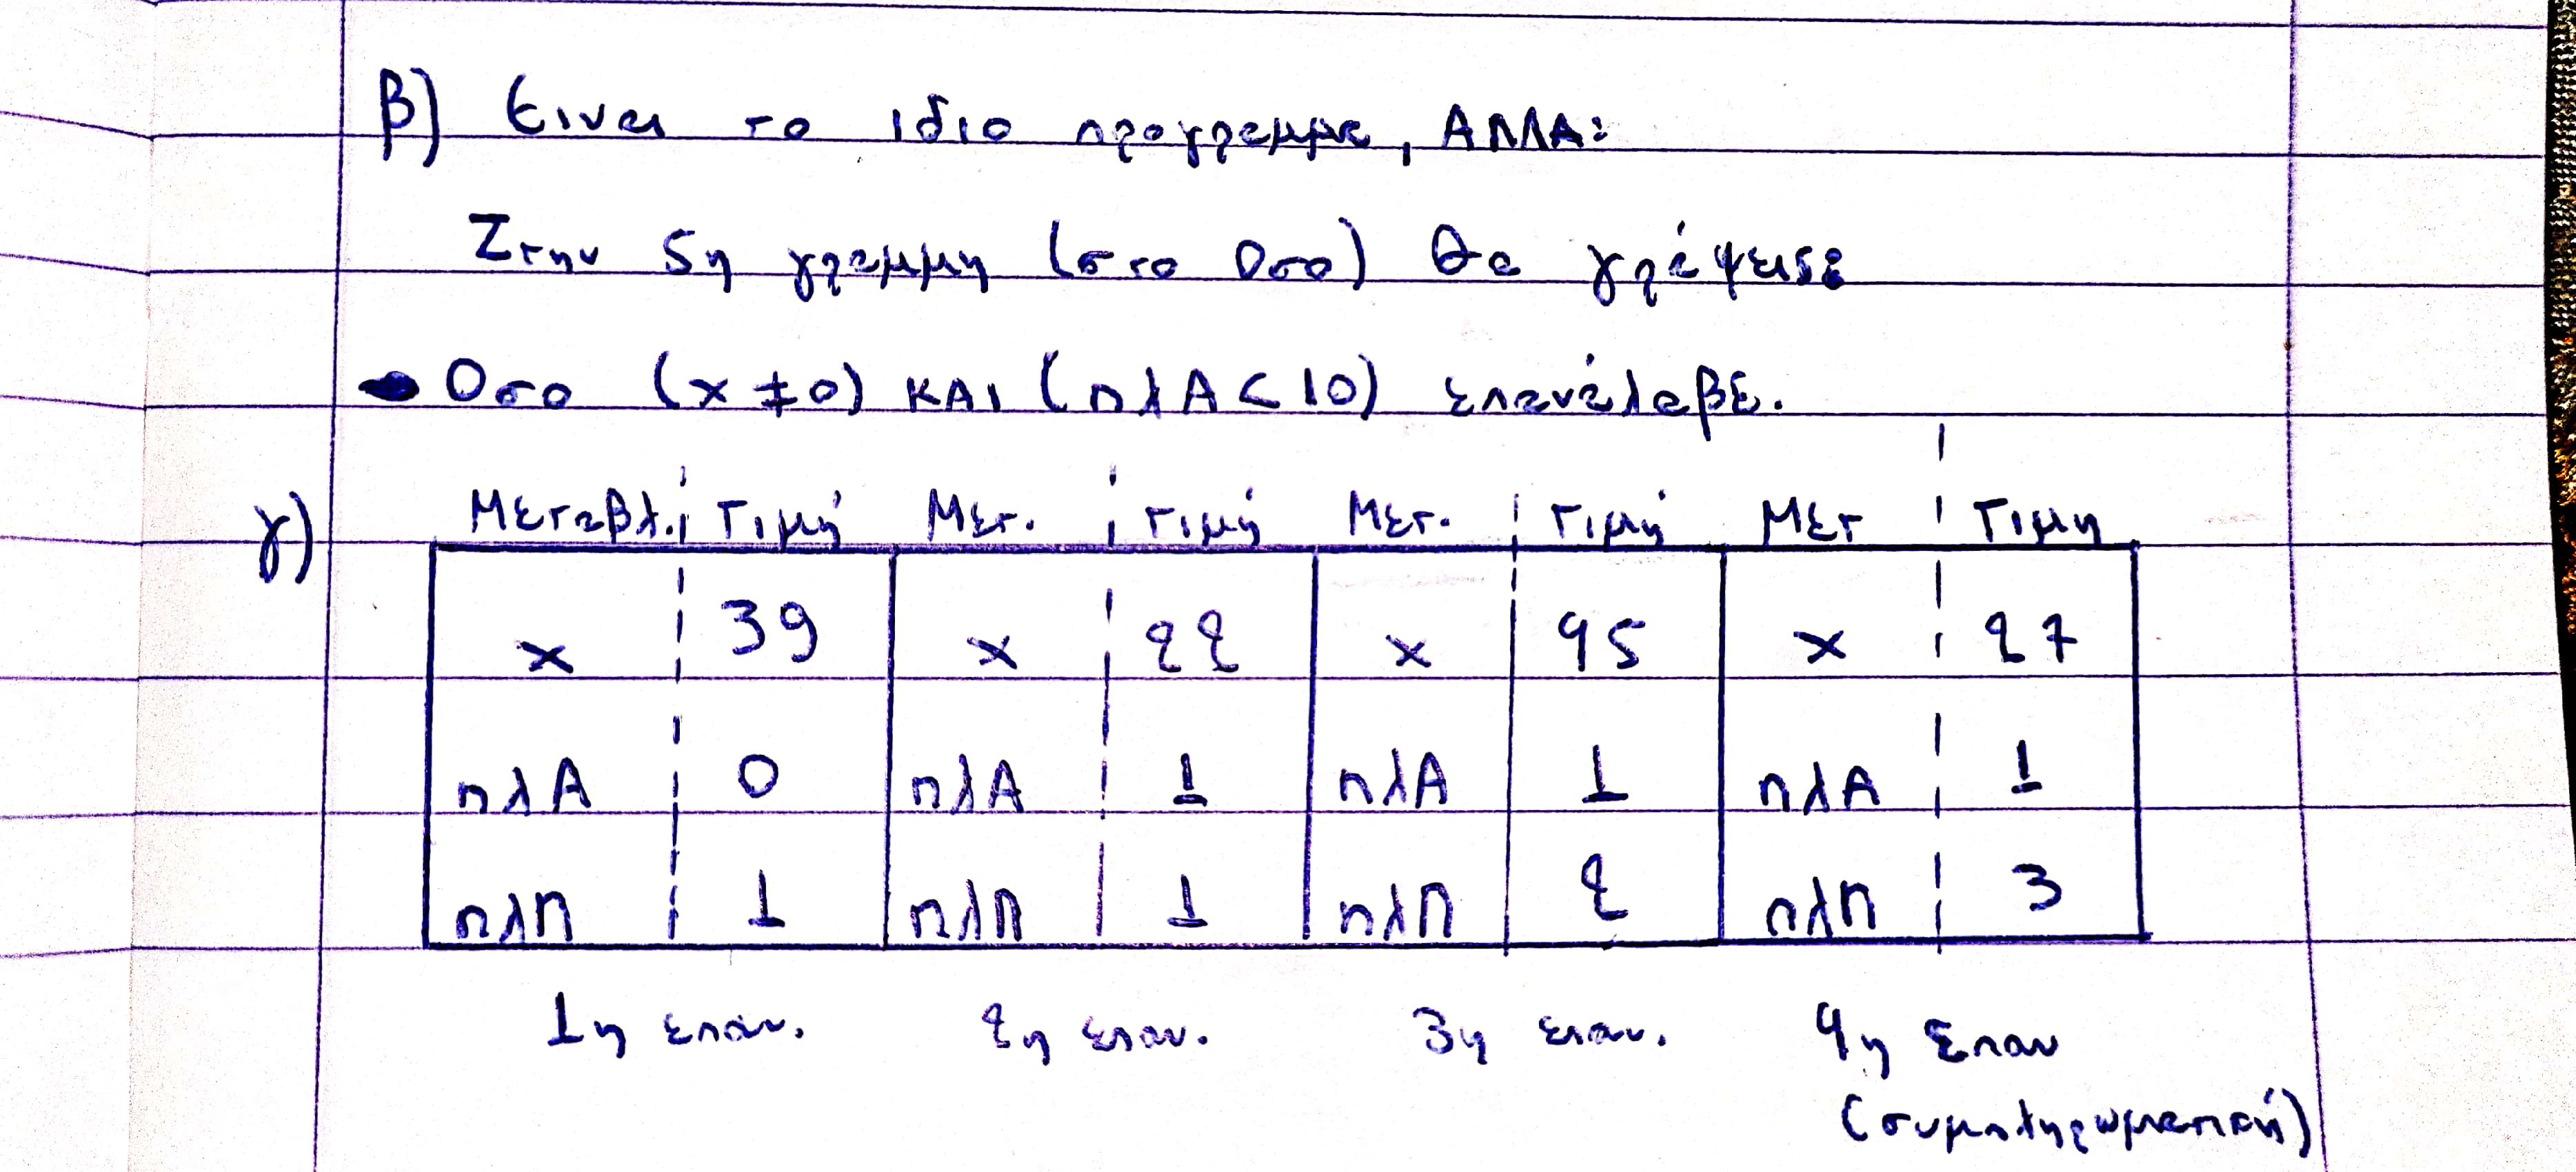 β) Ειναι το ιδιο προγραμμα, ΑΛΛΑ:
Στην 5η γραμμη (στο Οσο) θα γράψεις:
Οσο (x ≠ 0) ΚΑΙ (πλΑ < 10) επανάλαβε.
γ) Μεταβλ. Τιμή Μετ. τιμή Μετ. τιμή Μετ Τιμη
x 39 x 22 x 45 x 27
πλΑ 0 πλΑ 1 πλΑ 1 πλΑ 1
πλΠ 1 πλΠ 1 πλΠ 2 πλΠ 3
1η επαν. 2η επαν. 3η επαν. 4η Επαν
(συμπληρωματική)